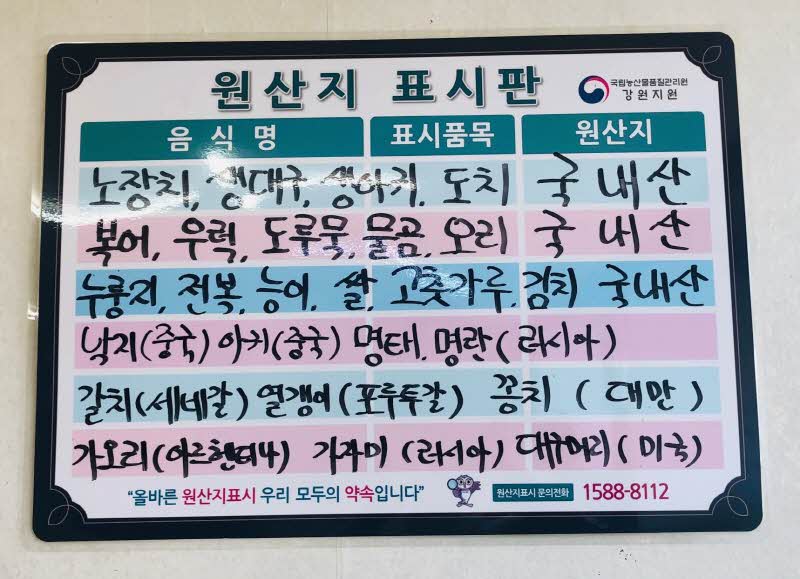 원산지 표시판
국립농산물품질관리원
강원지원
음식명 표시품목 원산지
노장치, 생대구, 생아귀, 도치 국내산
복어, 우럭, 도루묵, 물곰, 오리 국내산
누룽지, 전복, 능이, 쌀, 고춧가루, 김치 국내산
낙지(중국) 아귀(중국) 명태, 명란(러시아)
갈치(세네갈) 열갱이(포루투갈) 꽁치(대만)
가오리(아르헨티나) 가자미(러시아) 대구머리(미국)
"올바른 원산지표시 우리 모두의 약속입니다" 원산지표시 문의전화 1588-8112